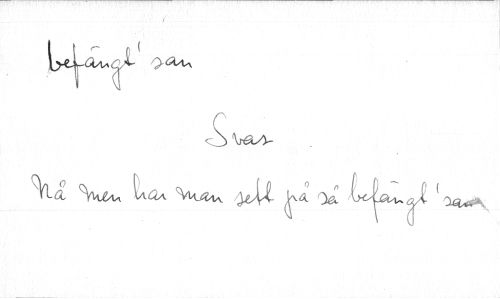 befängt' san
Svar
Nå men har man sett på så befängt' san